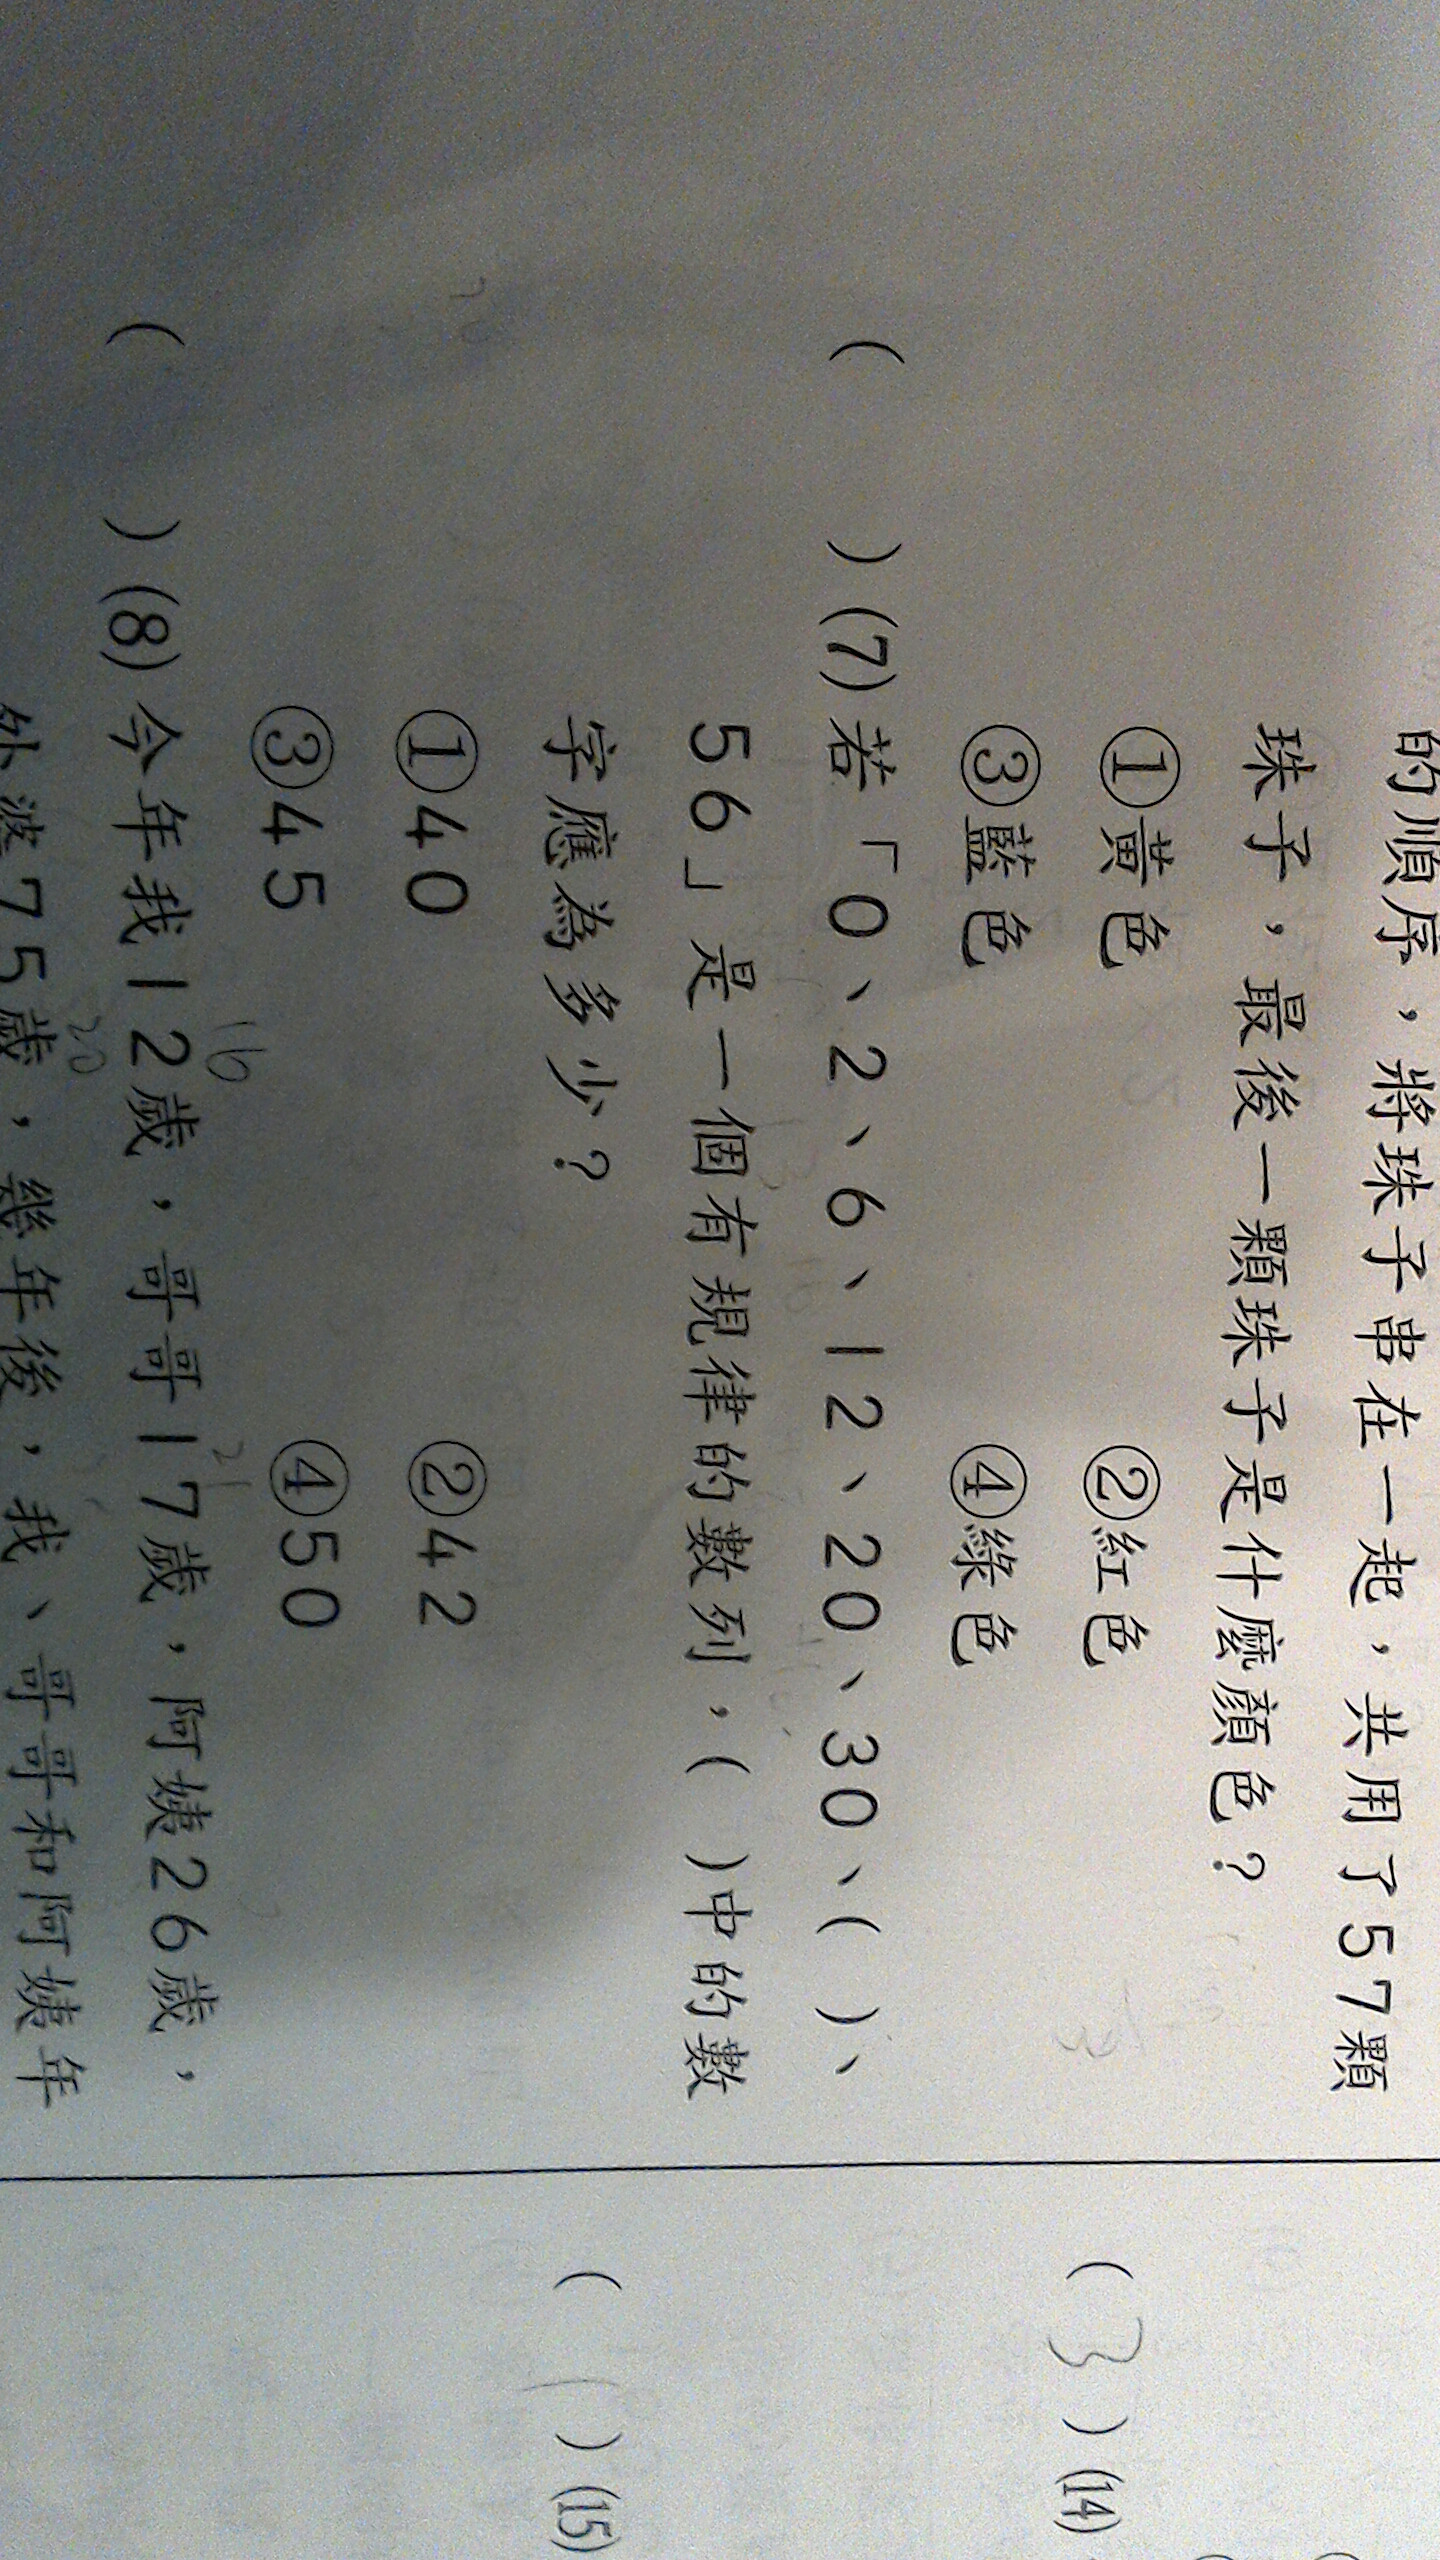 的順序，將珠子串在一起，共用了57顆
珠子，最後一顆珠子是什麼顏色？
①黃色 ②紅色
③藍色 ④綠色
( ) (7)若「0、2、6、12、20、30、( )、
56」是一個有規律的數列，( )中的數
字應為多少？
①40 ②42
③45 ④50
16 21
( ) (8)今年我12歲，哥哥17歲，阿姨26歲，
20
外婆75歲，幾年後，我、哥哥和阿姨年
(3) (14)
(1) (15)